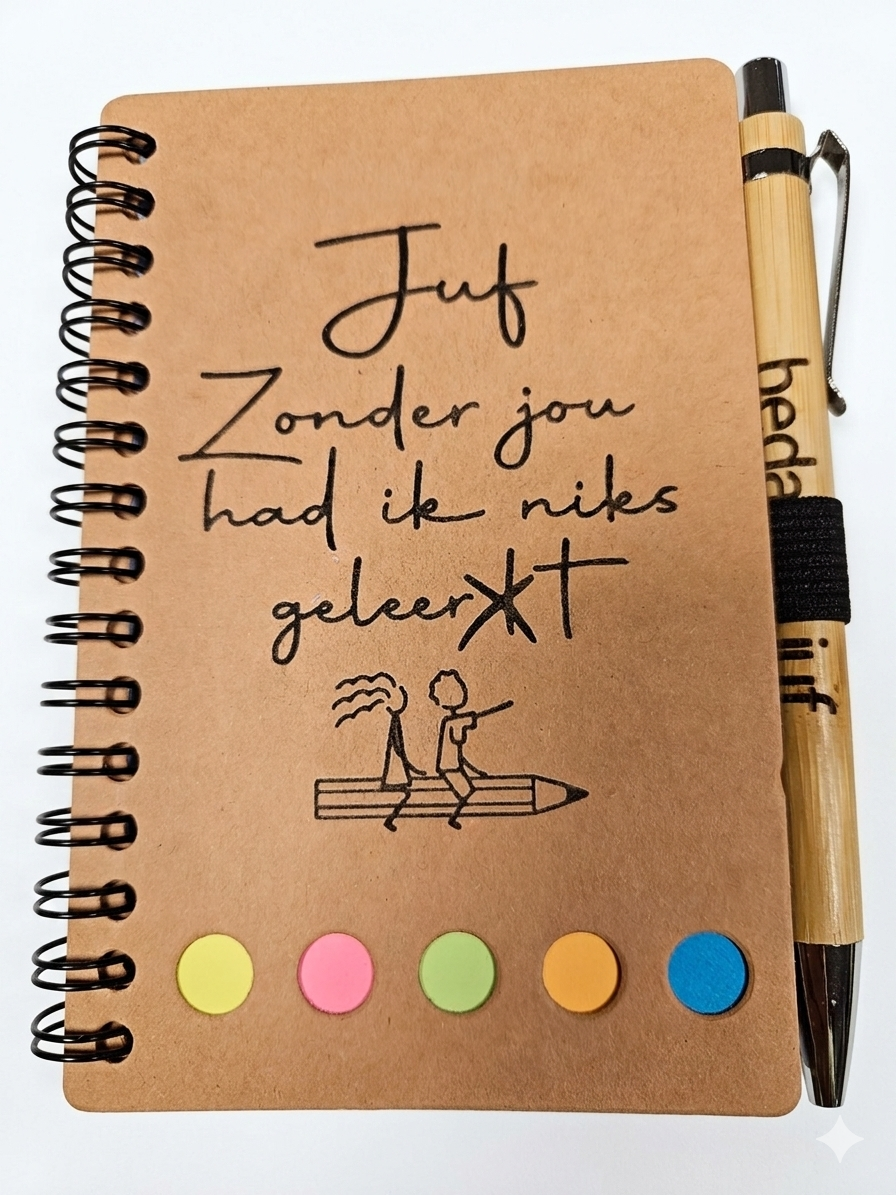 Juf
Zonder jou
had ik niks
geleerT
heda
juf